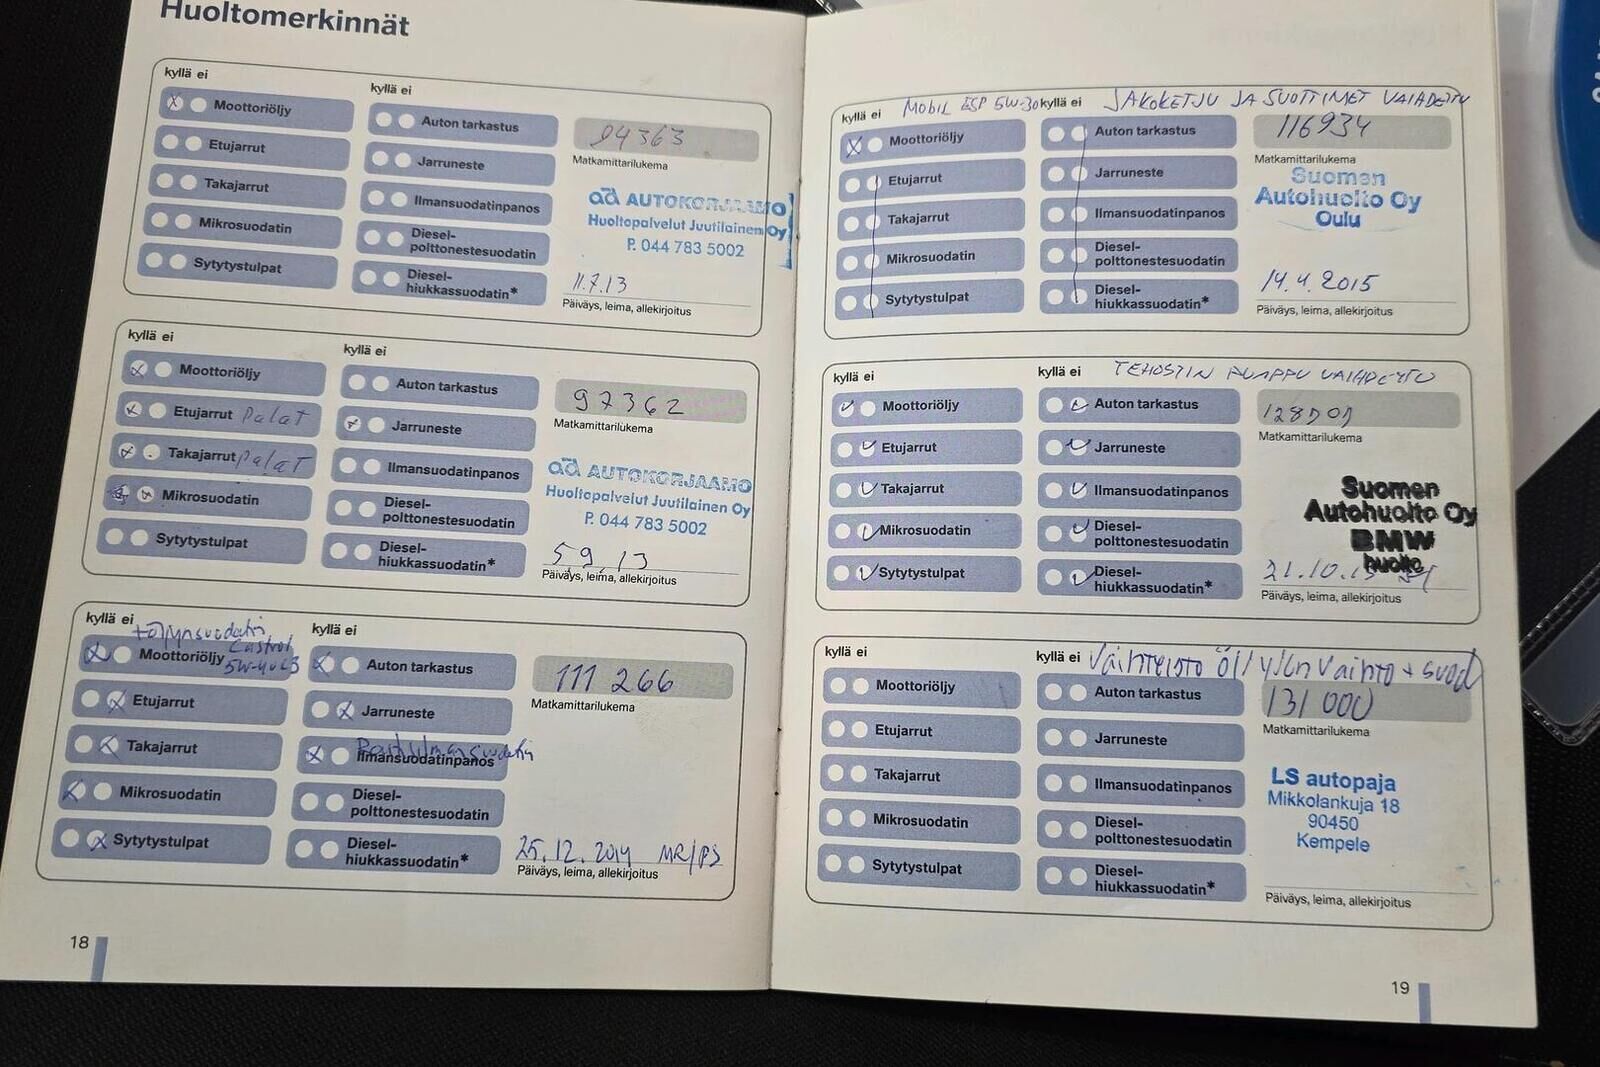 Huoltomerkinnät
kyllä ei
kyllä ei
Moottoriöljy
Etujarrut
Takajarrut
Mikrosuodatin
Sytytystulpat
Auton tarkastus
Jarruneste
Ilmansuodatinpanos
Diesel-
polttonestesuodatin
Diesel-
hiukkassuodatin*
94363
Matkamittarilukema
ad AUTOKORJAAMO
Huoltopalvelut Juutilainen Oy
P. 044 783 5002
11.7.13
Päiväys, leima, allekirjoitus
kyllä ei
kyllä ei
Moottoriöljy
Etujarrut Palat
Takajarrut Palat
Mikrosuodatin
Sytytystulpat
Auton tarkastus
Jarruneste
Ilmansuodatinpanos
Diesel-
polttonestesuodatin
Diesel-
hiukkassuodatin*
97362
Matkamittarilukema
ad AUTOKORJAAMO
Huoltopalvelut Juutilainen Oy
P. 044 783 5002
5 9 13
Päiväys, leima, allekirjoitus
kyllä ei
kyllä ei
Castrol
Moottoriöljy
Etujarrut
Takajarrut
Mikrosuodatin
Sytytystulpat
Auton tarkastus
Jarruneste
Ilmansuodatinpanos
Diesel-
polttonestesuodatin
Diesel-
hiukkassuodatin*
111 266
Matkamittarilukema
25.12.2014 MR/PS
Päiväys, leima, allekirjoitus
18
kyllä ei MOBIL ESP 5W-30
kyllä ei JAKOKETJU JA SUOTTIMET VAIHDETTU
Moottoriöljy
Etujarrut
Takajarrut
Mikrosuodatin
Sytytystulpat
Auton tarkastus
Jarruneste
Ilmansuodatinpanos
Diesel-
polttonestesuodatin
Diesel-
hiukkassuodatin*
116934
Matkamittarilukema
Suomen
Autohuolto Oy
Oulu
14.4.2015
Päiväys, leima, allekirjoitus
kyllä ei
kyllä ei TEHOSTIN PUMPPU VAIHDETTU
Moottoriöljy
Etujarrut
Takajarrut
Mikrosuodatin
Sytytystulpat
Auton tarkastus
Jarruneste
Ilmansuodatinpanos
Diesel-
polttonestesuodatin
Diesel-
hiukkassuodatin*
Matkamittarilukema
Suomen
Autohuolto Oy
BMW
huolto
21.10.15
Päiväys, leima, allekirjoitus
kyllä ei
kyllä ei Vaihteisto öljysen Vaihto + suod
Moottoriöljy
Etujarrut
Takajarrut
Mikrosuodatin
Sytytystulpat
Auton tarkastus
Jarruneste
Ilmansuodatinpanos
Diesel-
polttonestesuodatin
Diesel-
hiukkassuodatin*
131 000
Matkamittarilukema
LS autopaja
Mikkolankuja 18
90450
Kempele
Päiväys, leima, allekirjoitus
19